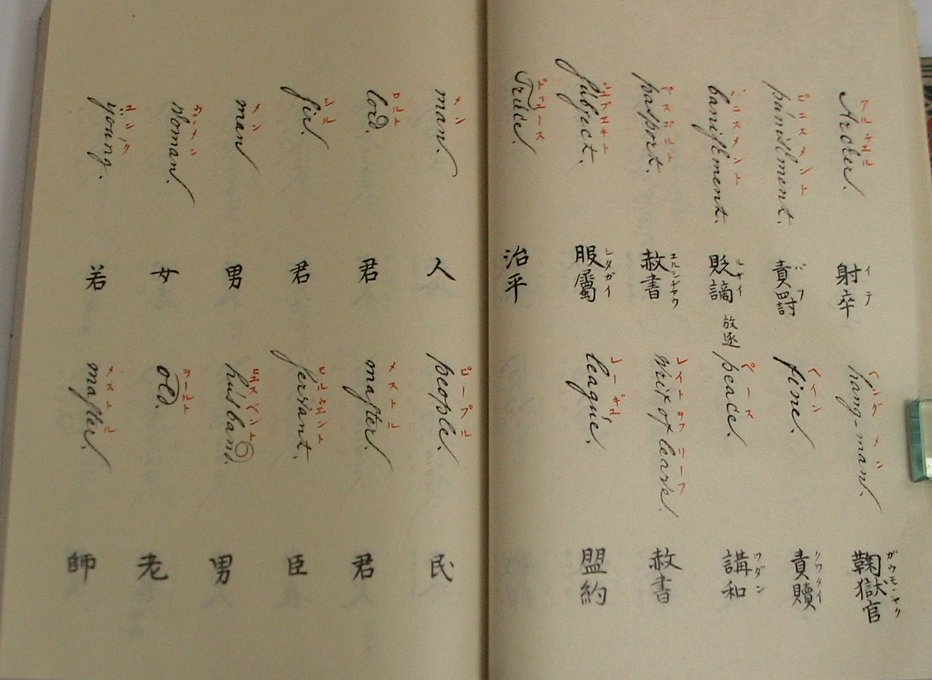 アルチエル
Archer.
射卒
イテ
ハングメン
hang-man.
鞠獄官
ガウモンヤク
ピユニスメント
puniſhment.
責罸
バツ
ハイン
fine.
責贖
クワタイ
バニスメント
baniſhment.
貶謫
放逐
ペース
peace.
講和
ワダン
パスポルト
paſport.
赦書
レイトヲフリーフ
writ of
赦書
ſubject.
服屬
シタガイ
レーギュ
league.
盟約
Truce.
治平
メン
man.
人
ピープル
people.
民
ロルト
lord.
君
メストル
maſter.
君
シル
ſir.
君
ſervant.
臣
メン
man
男
ヒュスベント
huſband.
男
ウメン
woman.
女
ヲールト
old.
老
ユング
young.
若
メストル
maſter.
師